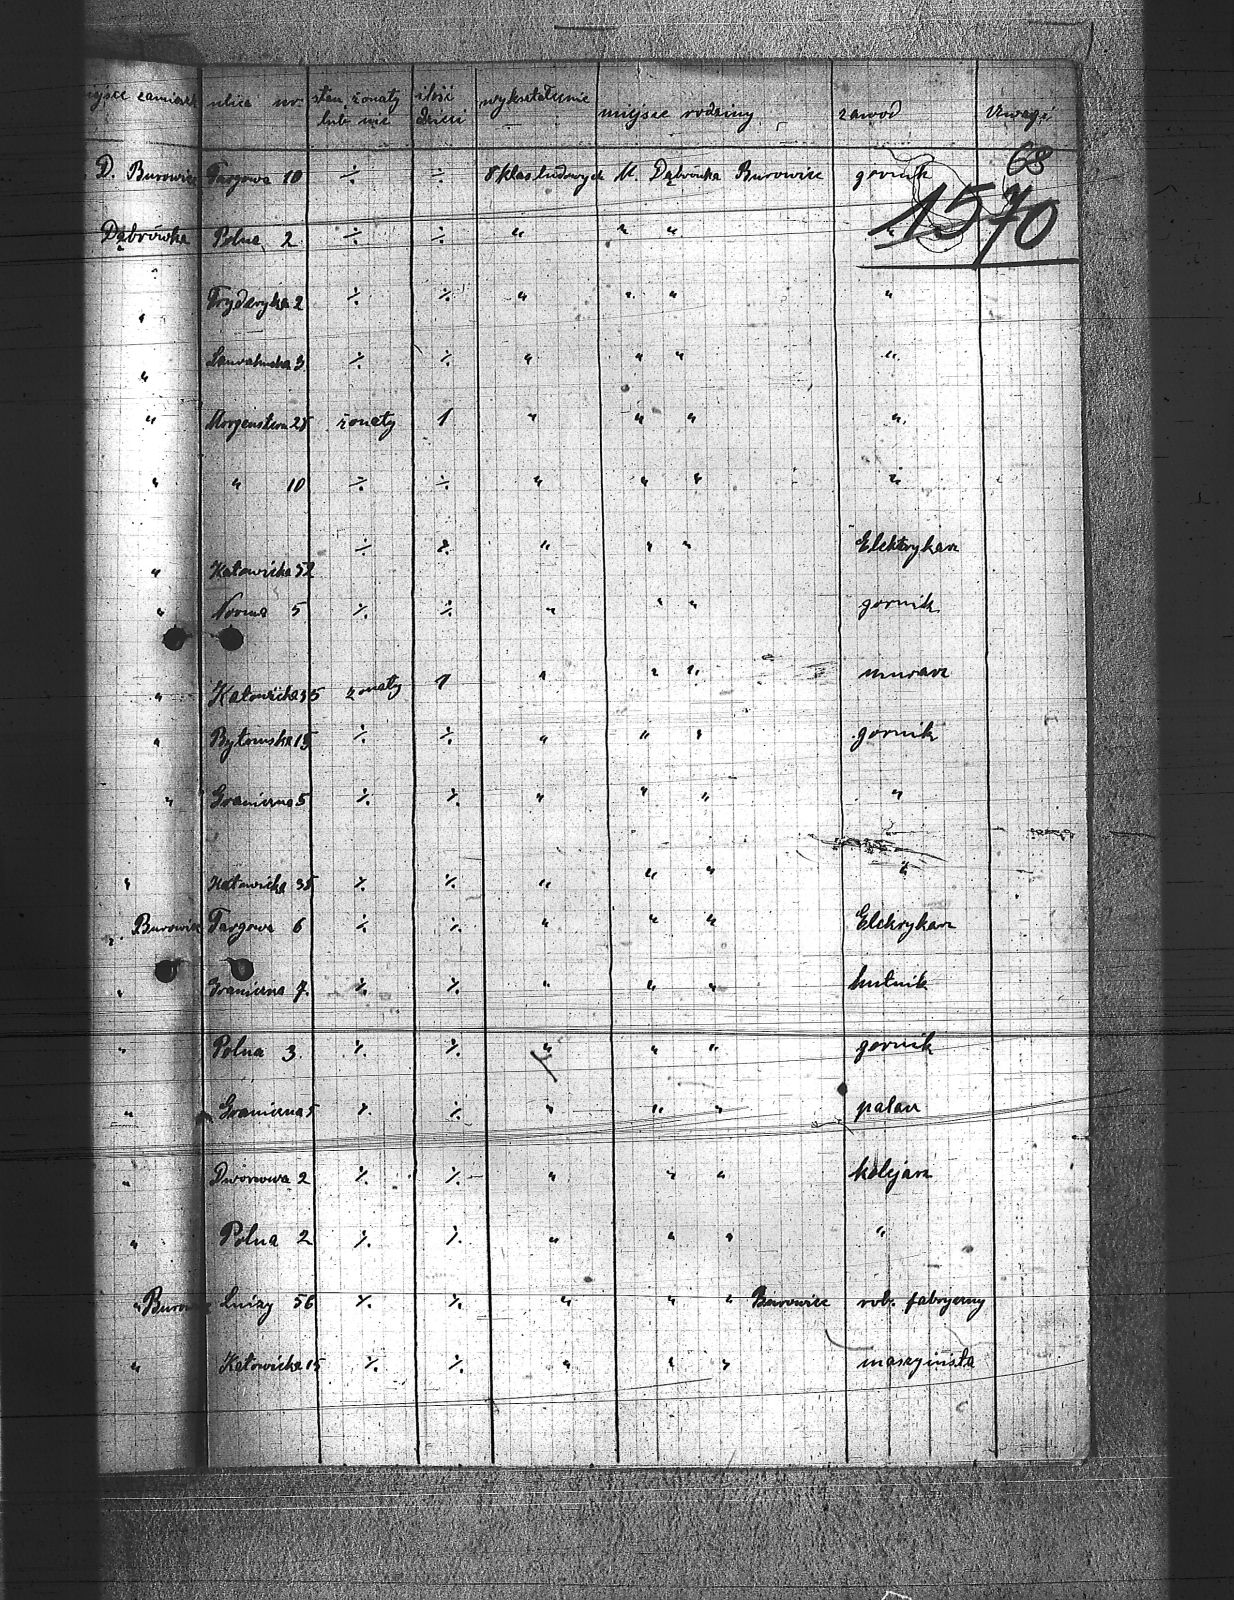 miejsce zamieszk ulica nr. stan, żonaty lub nie ilość dzieci wykształcenie miejsce rodziny zawód Uwagi
68
1570
D. Burowiec Targowa 10 ÷ ÷ 7 klas ludowych M. Dąbrówka Burowiec gornik
Dąbrówka Polna 2 ÷ ÷ " " " "
" Fryderyka 2 ÷ ÷ " " " "
" 3 ÷ ÷ " " " "
" Morgenstern 28 żonaty 1 " " " "
" " 10 ÷ ÷ " " " "
" Katowicka 52 ÷ ÷ " " " Elektrykarz
" Norma 5 ÷ ÷ " " " gornik
" Katowicka 35 żonaty 1 " " " murarz
" Bytomska 15 ÷ ÷ " " " gornik
" Graniczna 5 ÷ ÷ " " " "
" Katowicka 35 ÷ ÷ " " " "
" Burowiec Targowa 6 ÷ ÷ " " " Elekrykarz
" Graniczna 7. ÷ ÷ " " " hutnik
" Polna 3. ÷ ÷ " " " gornik
" Graniczna 5 ÷ ÷ " " " palarz
" Dworcowa 2 ÷ ÷ " " " kolejarz
" Polna 2 ÷ ÷ " " " "
" Burowiec Luizy 56 ÷ ÷ " " " Burowiec rob. fabryczny
" Katowicka 15 ÷ ÷ " " " maszyinsta